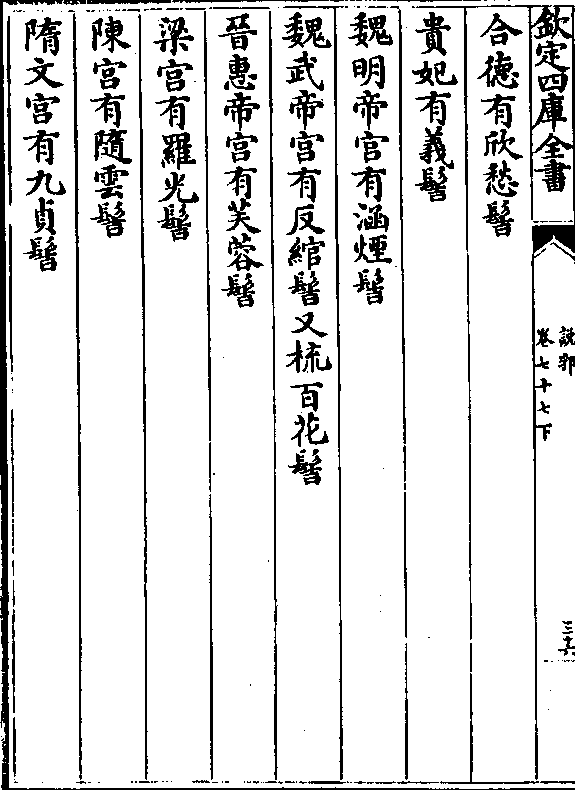 欽定四庫全書
説郛
卷七十七下
三六
合德有欣愁髻
貴妃有義髻
魏明帝宫有涵煙髻
魏武帝宫有反綰髻又梳百花髻
晉惠帝宫有芙蓉髻
梁宫有羅光髻
陳宫有隨雲髻
隋文宫有九貞髻